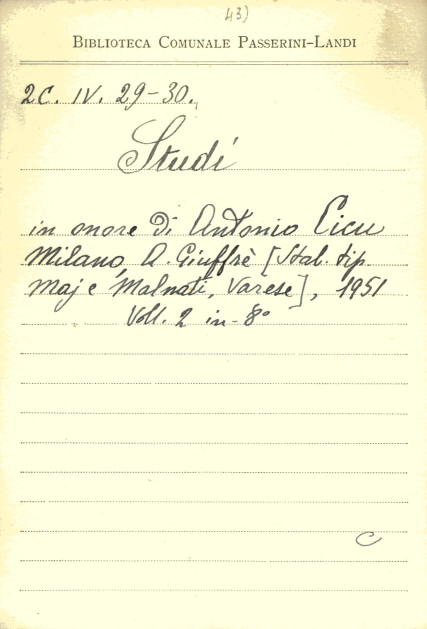 43)
BIBLIOTECA COMUNALE PASSERINI-LANDI
2C. IV. 29-30.
Studi
in onore di Antonio Cicu
Milano, A. Giuffrè [Stab. tip.
Maj e Malnati, Varese], 1951
Voll. 2 in-8°
C